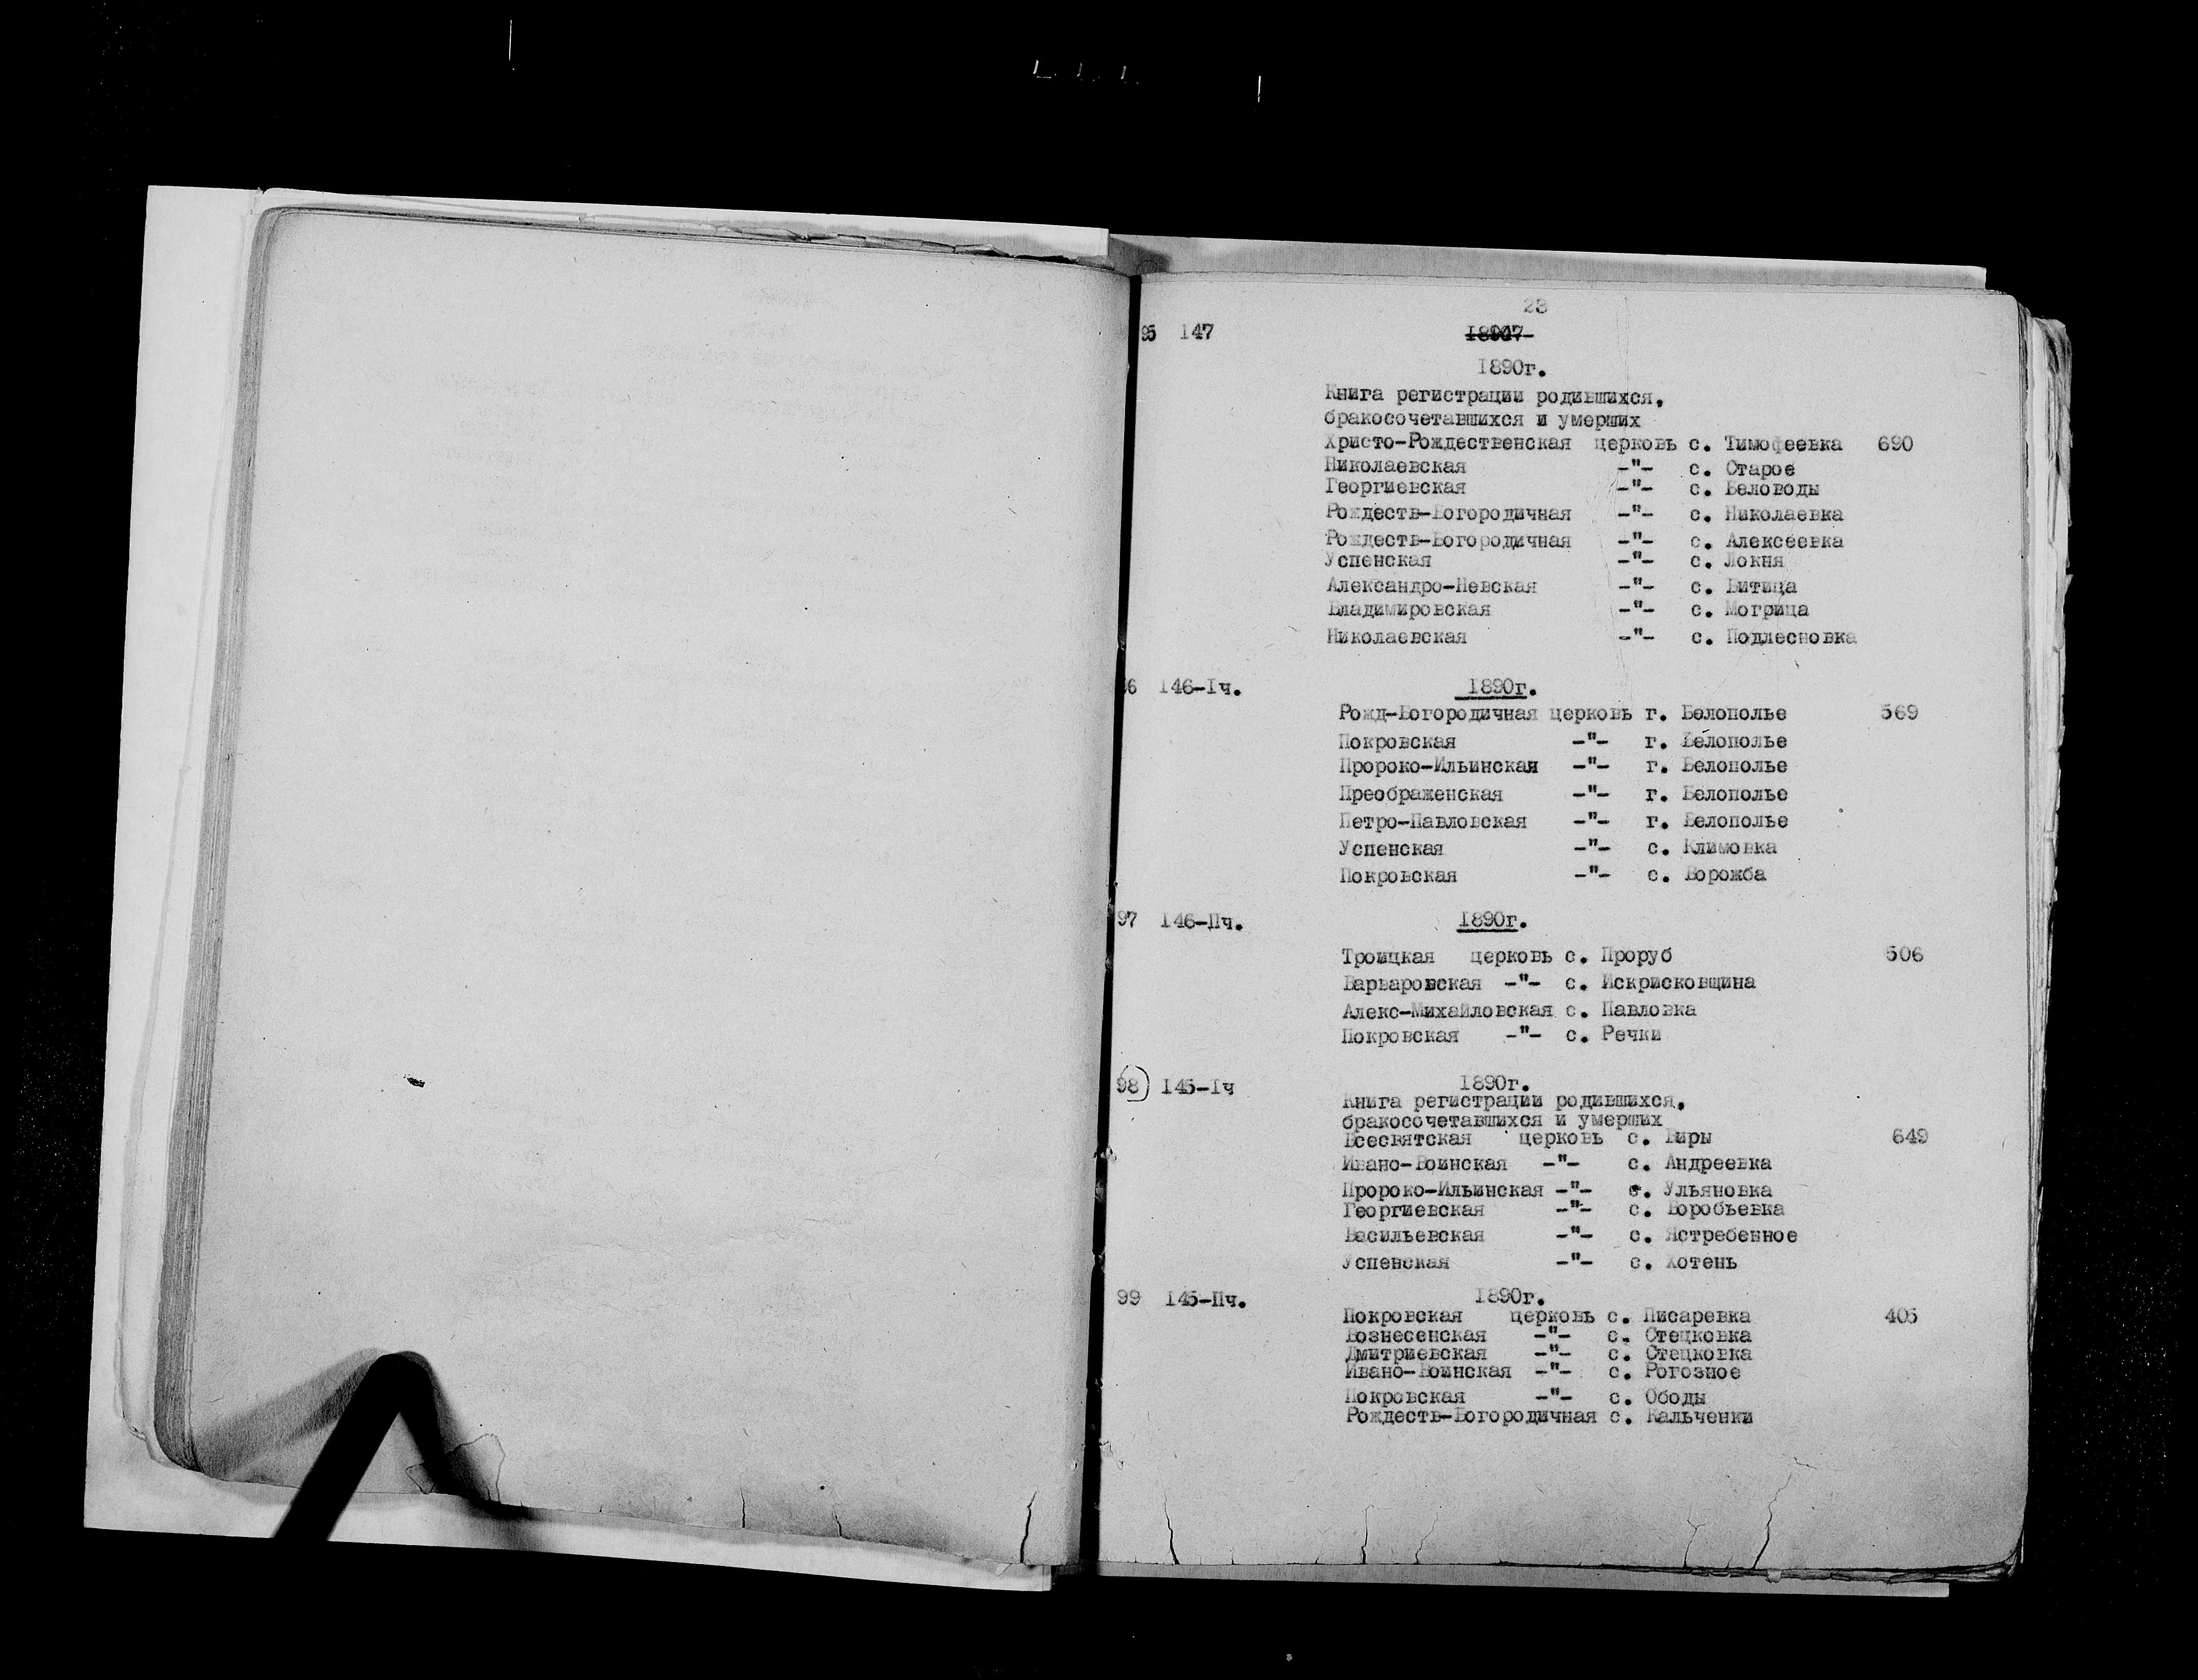 23
95 147 18907-
1890г.
Книга регистрации родившихся,
бракосочетавшихся и умерших
Христо-Рождественская церковь с. Тимофеевка 690
Николаевская -"- с. Старое
Георгиевская -"- с. Беловоды
Рождеств-Богородичная -"- с. Николаевка
Рождеств-Богородичная -"- с. Алексеевка
Успенская -"- с. Локня
Александро-Невская -"- с. Битица
Владимировская -"- с. Могрица
Николаевская -"- с. Подлесновка
96 146-Iч. 1890г.
Рожд-Богородичная церковь г. Белополье 569
Покровская -"- г. Белополье
Пророко-Ильинская -"- г. Белополье
Преображенская -"- г. Белополье
Петро-Павловская -"- г. Белополье
Успенская -"- с. Климовка
Покровская -"- с. Ворожба
97 146-Пч. 1890г.
Троицкая церковь с. Проруб 506
Варваровская -"- с. Искрисковщина
Алекс-Михайловская с. Павловка
Покровская -"- с. Речки
98) 145-Iч 1890г.
Книга регистрации родившихся,
бракосочетавшихся и умерших
Всесвятская церковь с. Виры 649
Ивано-Воинская -"- с. Андреевка
Пророко-Ильинская -"- с. Ульяновка
Георгиевская -"- с. Воробьевка
Васильевская -"- с. Ястребенное
Успенская -"- с. Хотень
99 145-Пч. 1890г.
Покровская церковь с. Писаревка 405
Вознесенская -"- с. Стецковка
Дмитриевская -"- с. Стецковка
Ивано-Воинская -"- с. Рогозное
Покровская -"- с. Ободы
Рождеств-Богородичная с. Кальченки